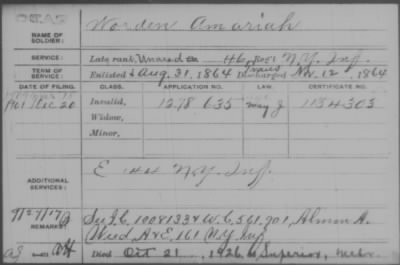 DEAD
NAME OF SOLDIER: Worden Amariah
SERVICE: Late rank, Unassd 46 Reg't N.Y. Inf.
TERM OF SERVICE: Enlisted Aug. 31, 1864 Discharged Nov. 12, 1864
DATE OF FILING. CLASS. APPLICATION NO. LAW. CERTIFICATE NO.
1901 Dec 20 Invalid, 1278 635 1134303
Widow,
Minor,
ADDITIONAL SERVICES: E 144 N.Y. Inf.
REMARKS: 1008133 & W.C. 561,901, Almon A.
161 N.Y. Inf.
Died Oct 21, 1926, at Superior, Nebr.